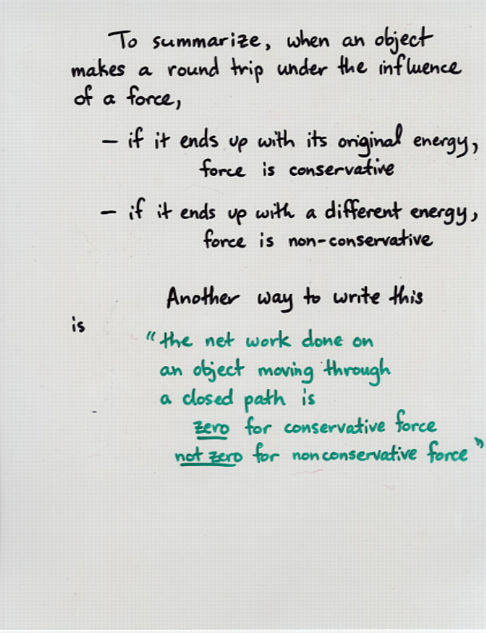 To summarize, when an object
makes a round trip under the influence
of a force,
– if it ends up with its original energy,
force is conservative
– if it ends up with a different energy,
force is non-conservative
Another way to write this
is
"the net work done on
an object moving through
a closed path is
zero for conservative force
not zero for nonconservative force"